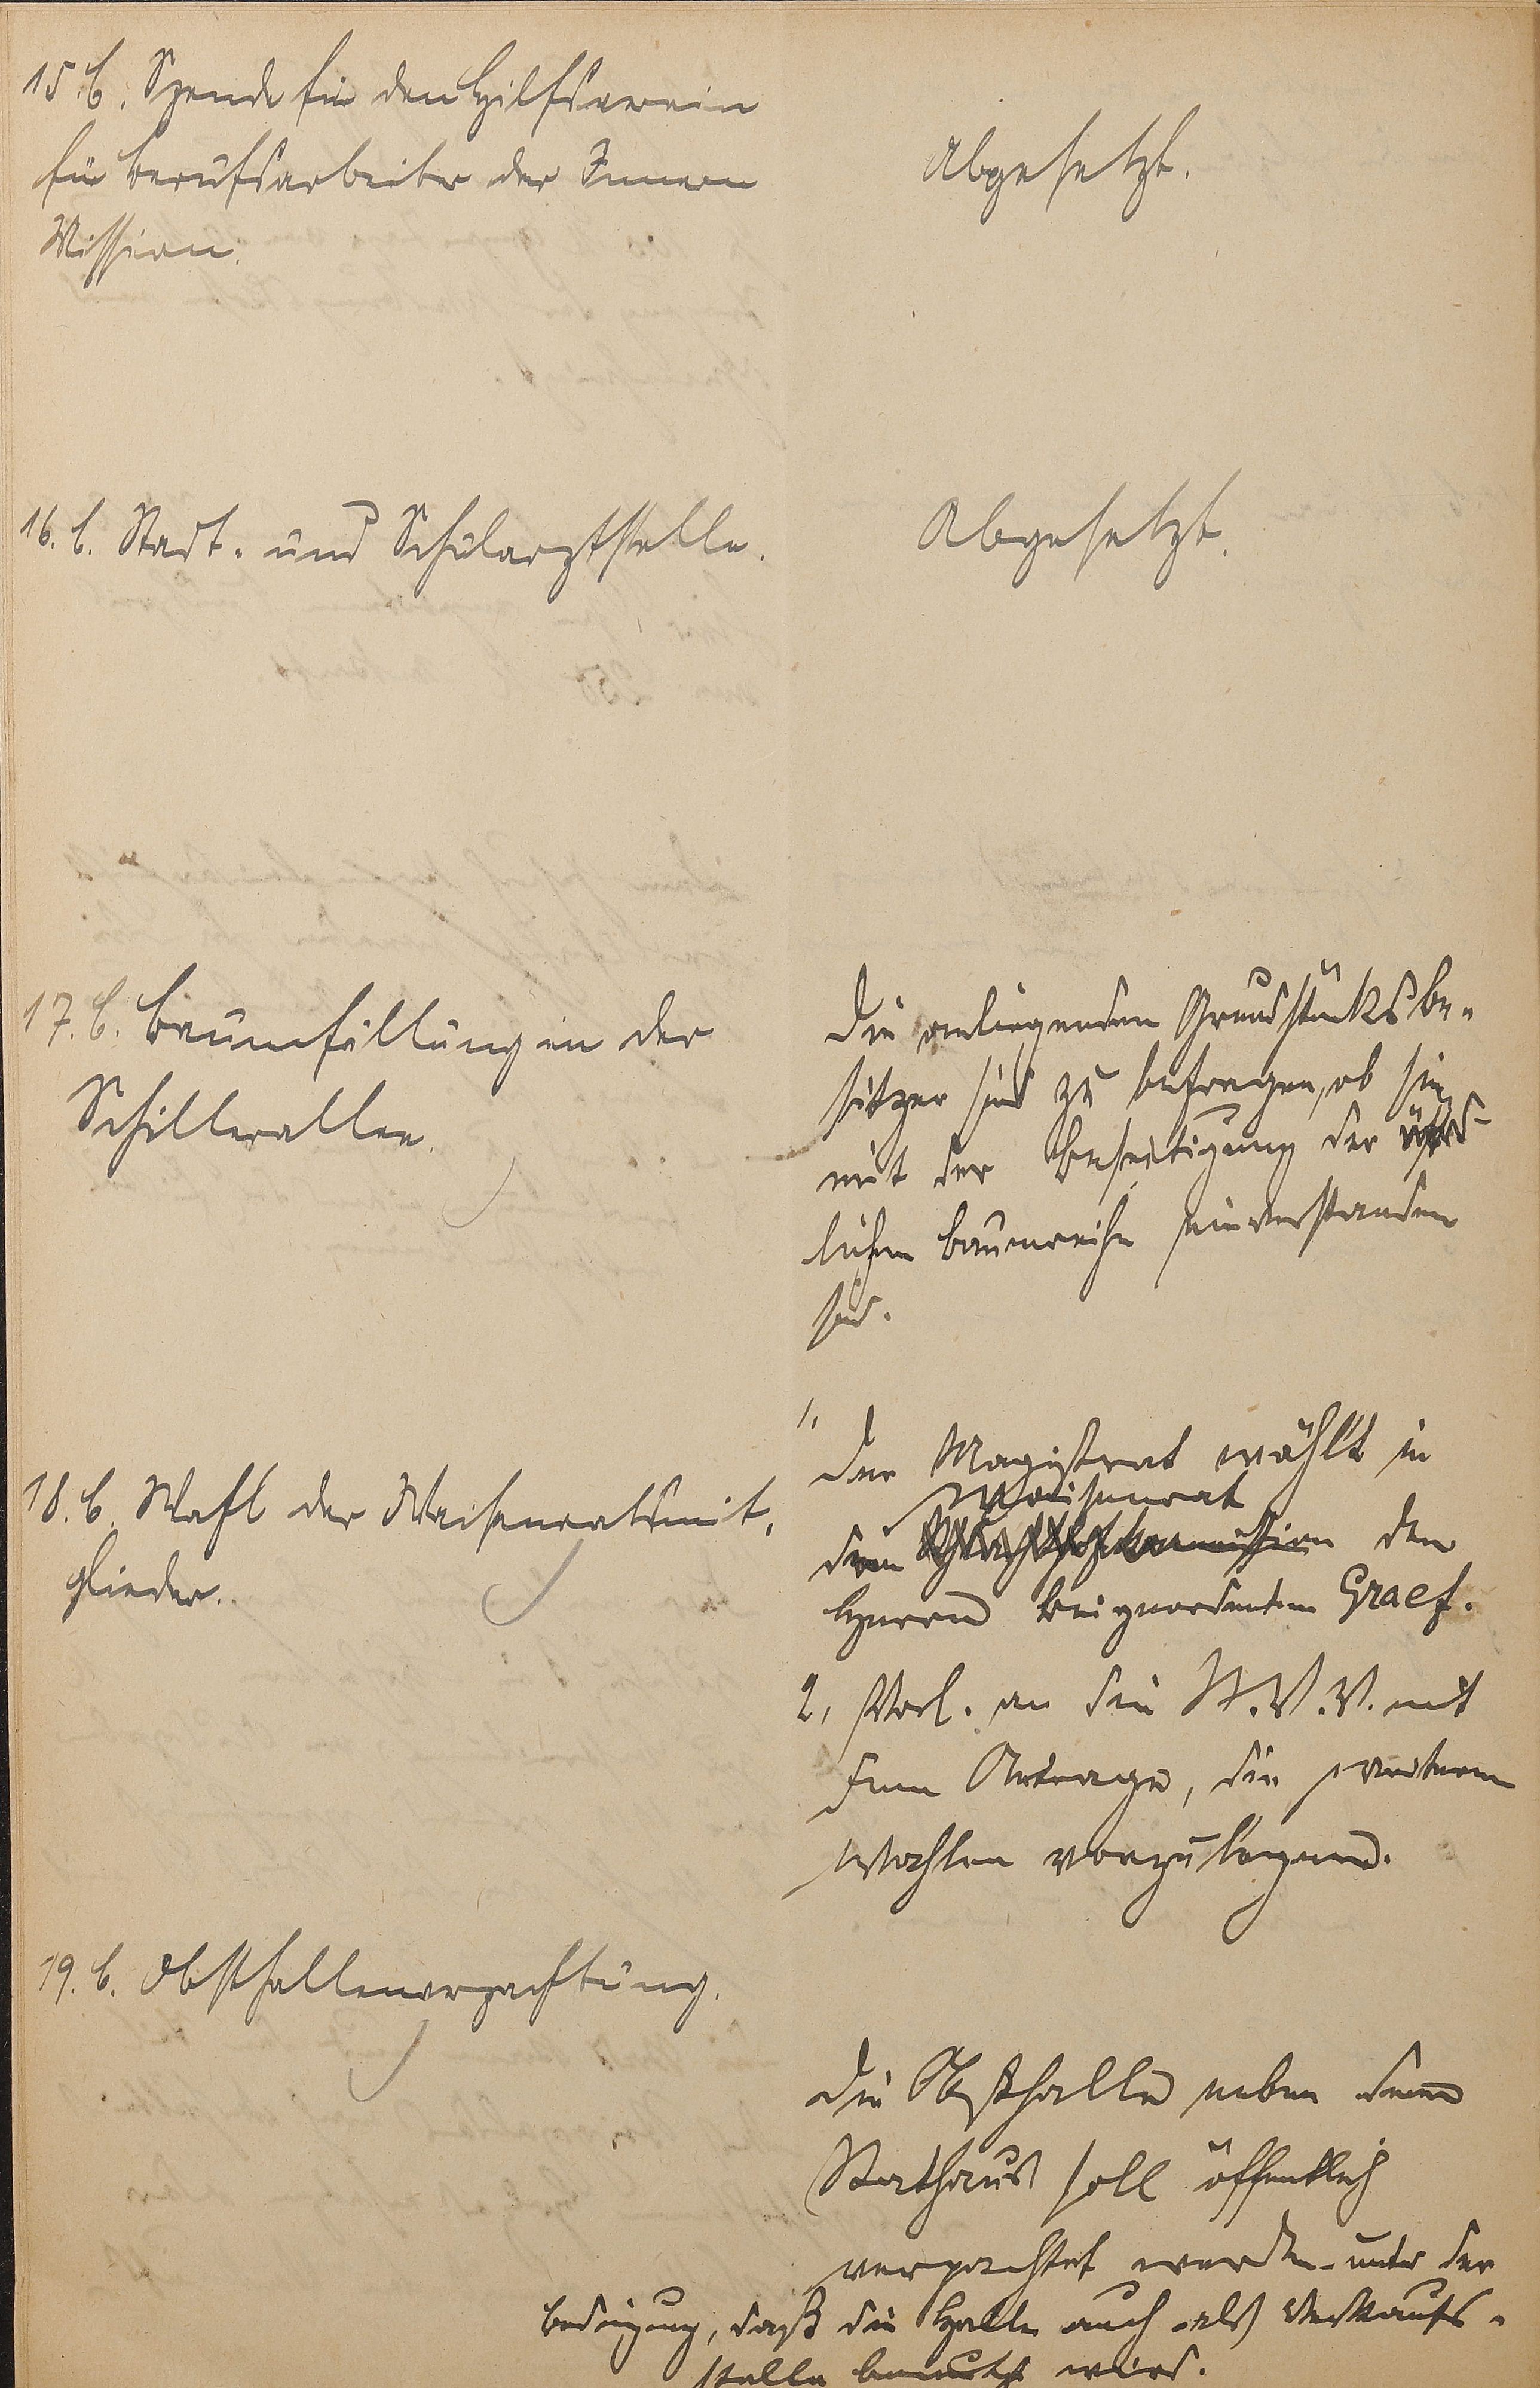 15. b. Spende für den Hilfsverein
für Berufsarbeiter der Innern
Mission.
Abgesetzt.
16. b. Stadt- und Schularztstelle.
Abgesetzt.
17. b. Baumfällung in der
Schillerallee.
Die anliegenden Grundstücksbe-
sitzer sind zu befragen, ob sie
mit der Beseitigung der
lichen Baumreihe einverstanden
sind.
18. b. Wahl der Waisenratsmit-
glieder.
1,
Der Magistrat wählt in
Waisenrat
den Schlachthofkommission den
Herrn Beigeordneten Graef.
2, Vorl. an die St.V.V. mit
dem Antrage, die weiteren
Wahlen vorzulegen.
19. b. Obsthallenverpachtung.
Die Obsthalle neben dem
Rathaus soll öffentlich
verpachtet werden unter der
Bedingung, daß die Halle auch als Verkaufs-
stelle benutzt wird.